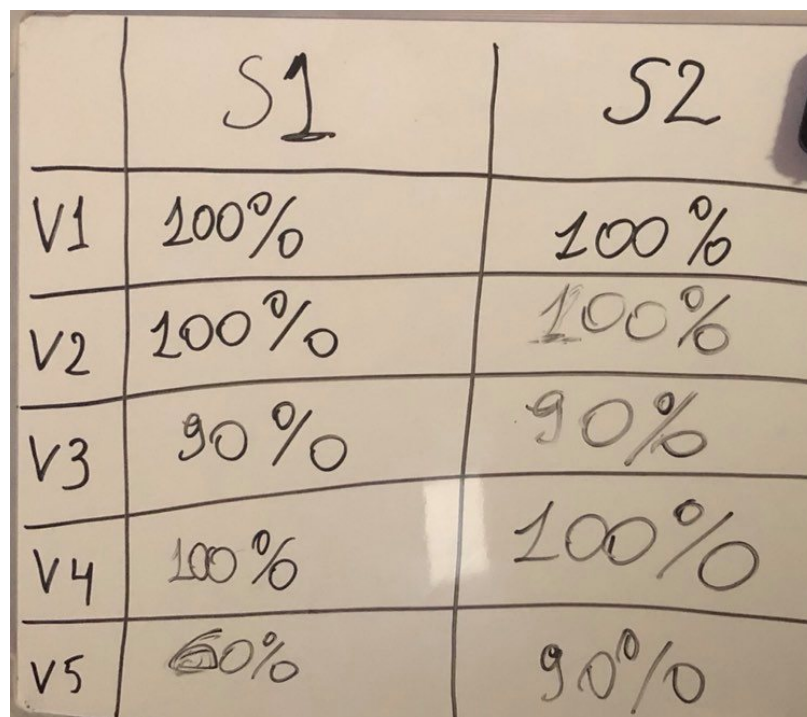 S1 S2
V1 100% 100%
V2 100% 100%
V3 90% 90%
V4 100% 100%
V5 60% 90%